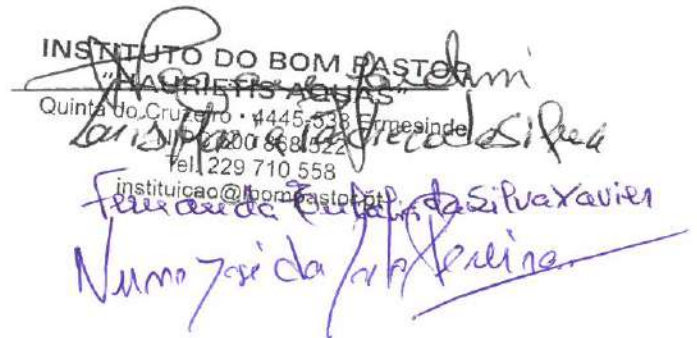 INSTITUTO DO BOM PASTOR
"HAURIETIS AQUAS"
Quinta do Cruzeiro • 4445-538 Ermesinde
Luis Maria da Silva
868 522
Tel. 229 710 558
instituicao@ibompastor.pt
Fernanda Eulália da Silva Xavier
Nuno José da Pereira